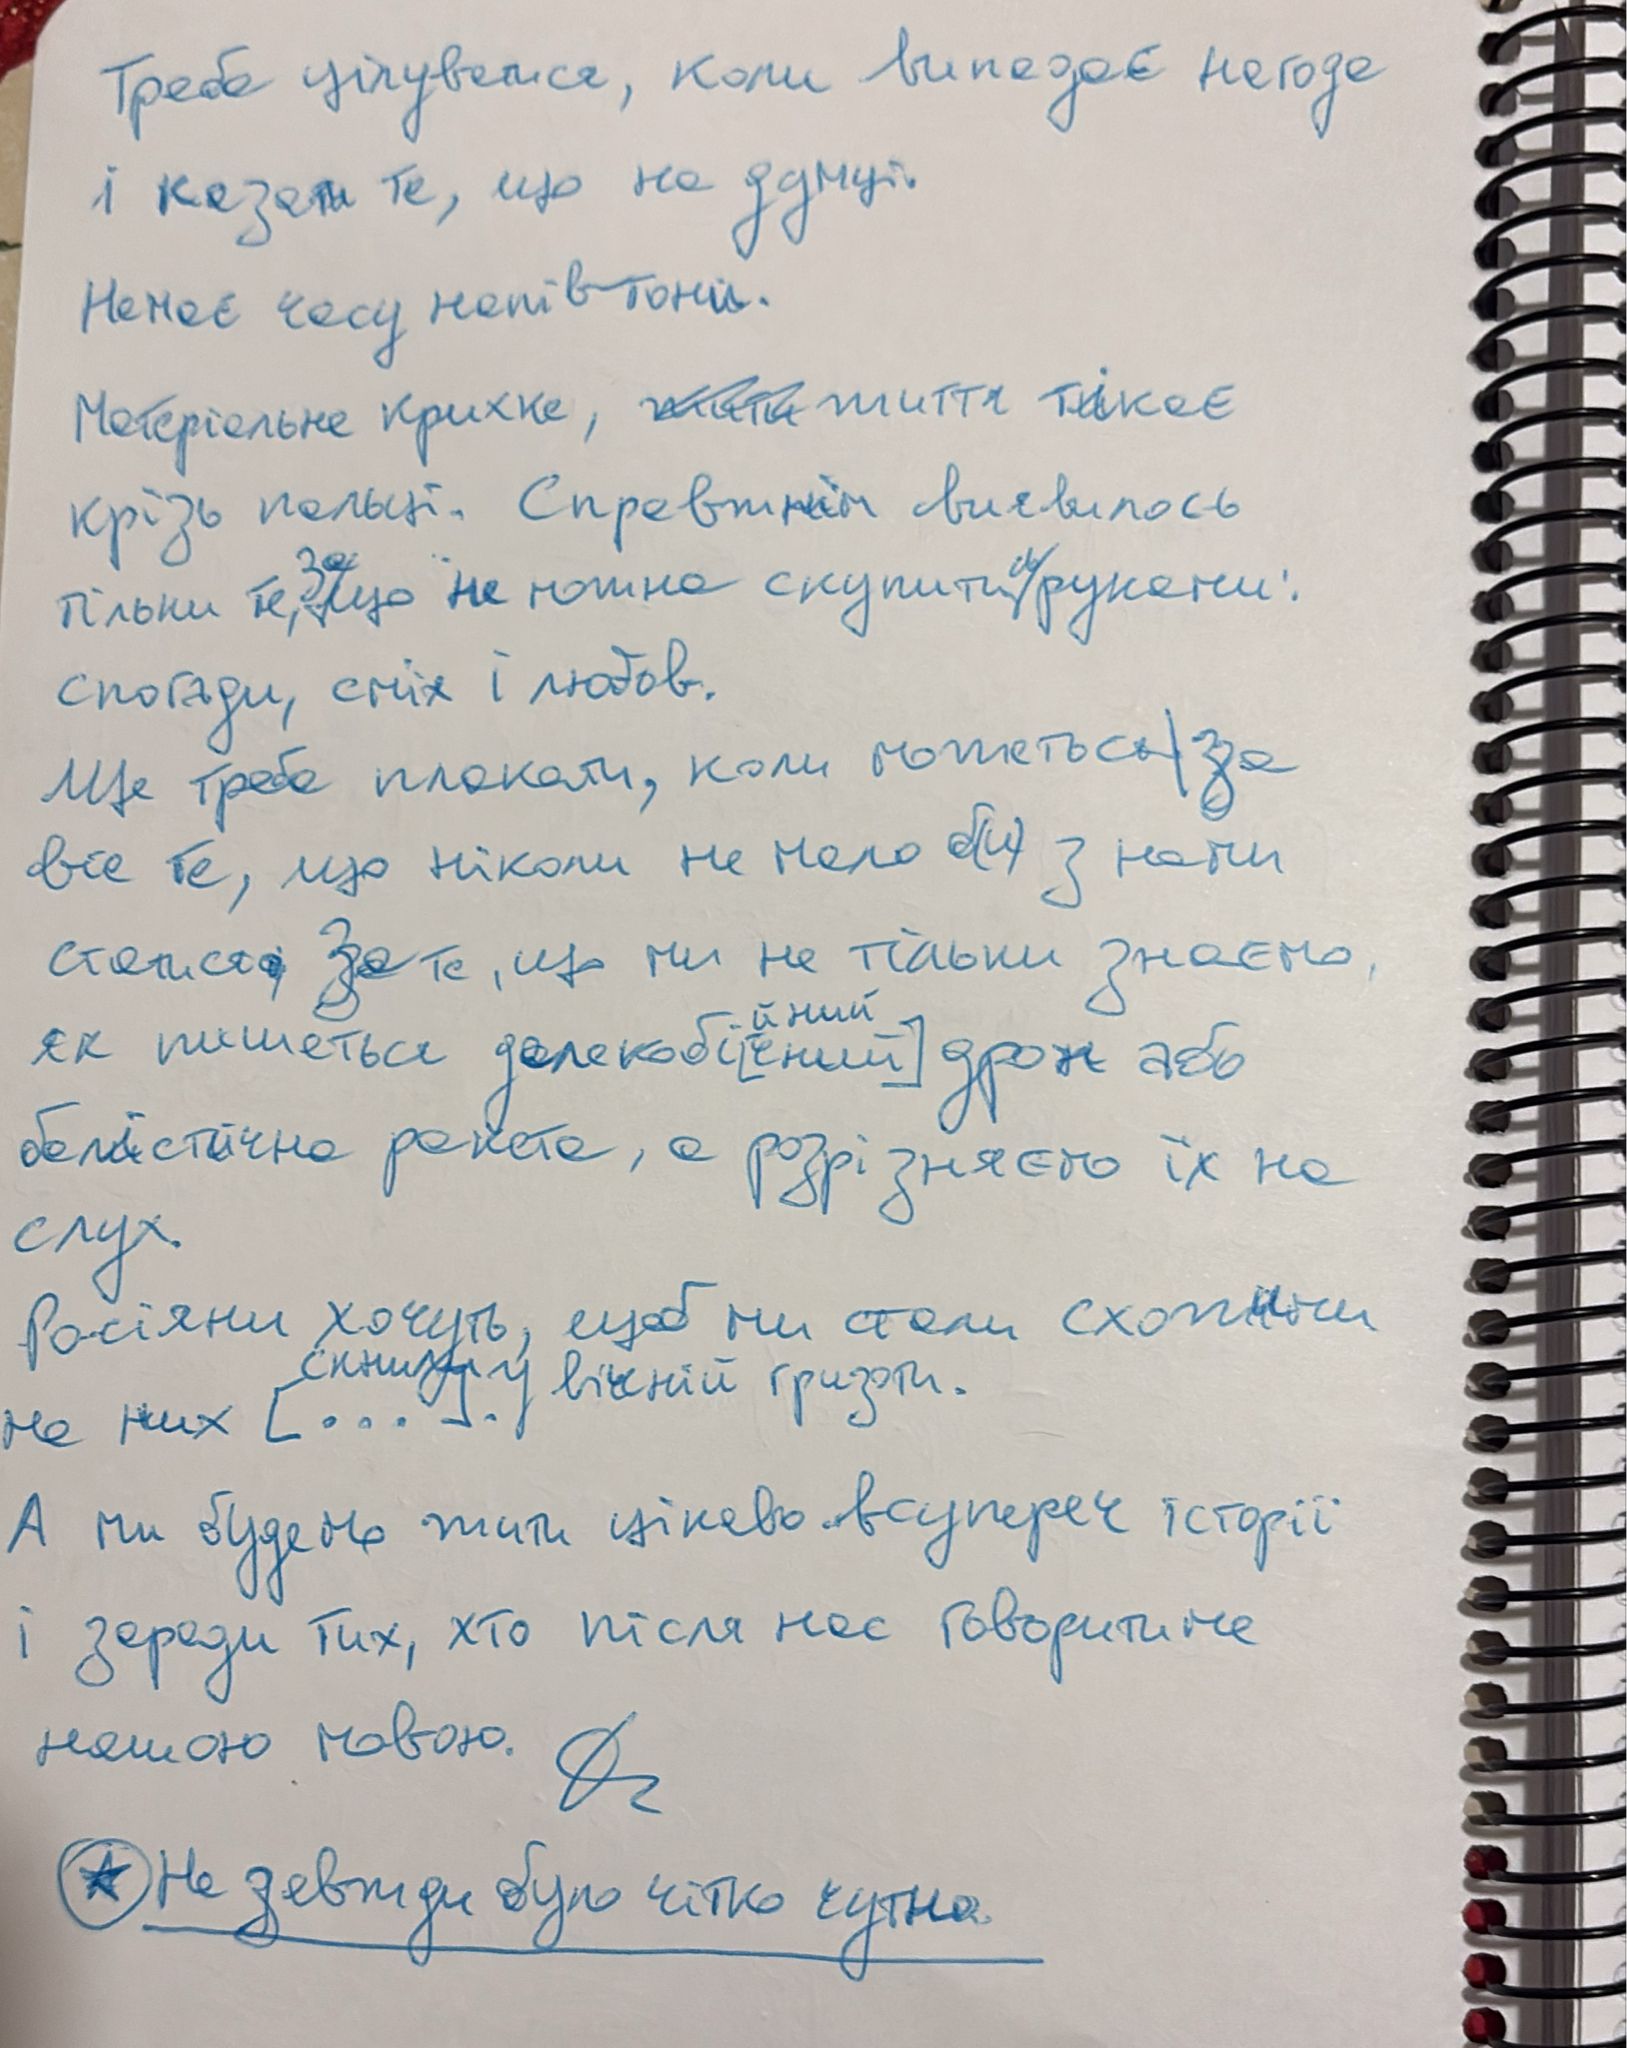 Треба цілуватися, коли випадає нагода
і казати те, що на думці.
Немає часу напівтони.
Матеріальне крихке, життя тікає
крізь пальці. Справжнім виявилось
тільки те, за що не можна скупити руками:
спогади, сміх і любов.
Ще треба плакати, коли можеться за
все те, що ніколи не мало б(и) з нами
статися, за те, що ми не тільки знаємо,
як пишеться далекобі[чний] йний дрон або
балістична ракета, а розрізняємо їх на
слух.
Росіяни хочуть, щоб ми стали схожими
на них [...]. у вічній гризоти.
А ми будемо жити цікаво всупереч історії
і заради тих, хто після нас говоритиме
нашою мовою.
Не завжди було чітко чутна